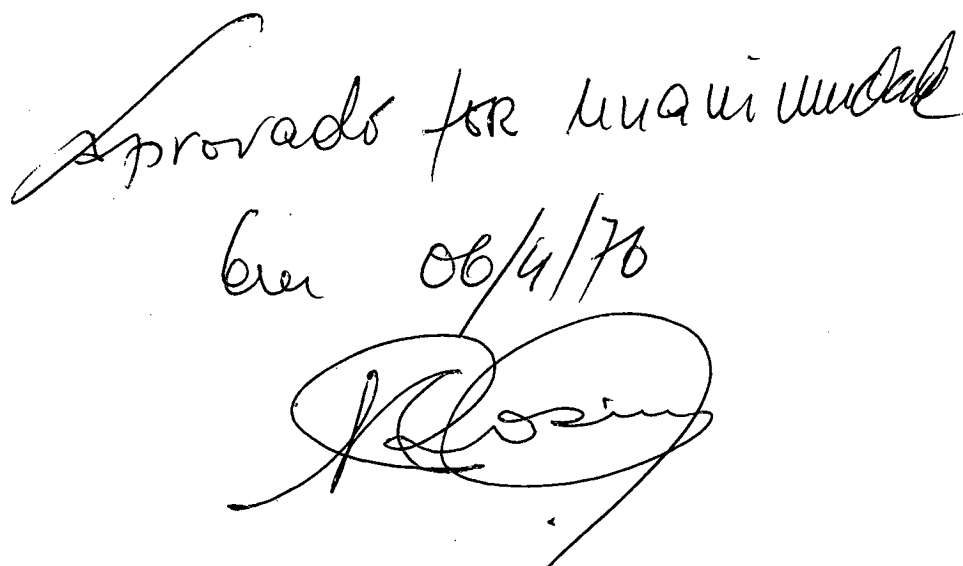 Aprovado por unanimidade
Em 06/4/76